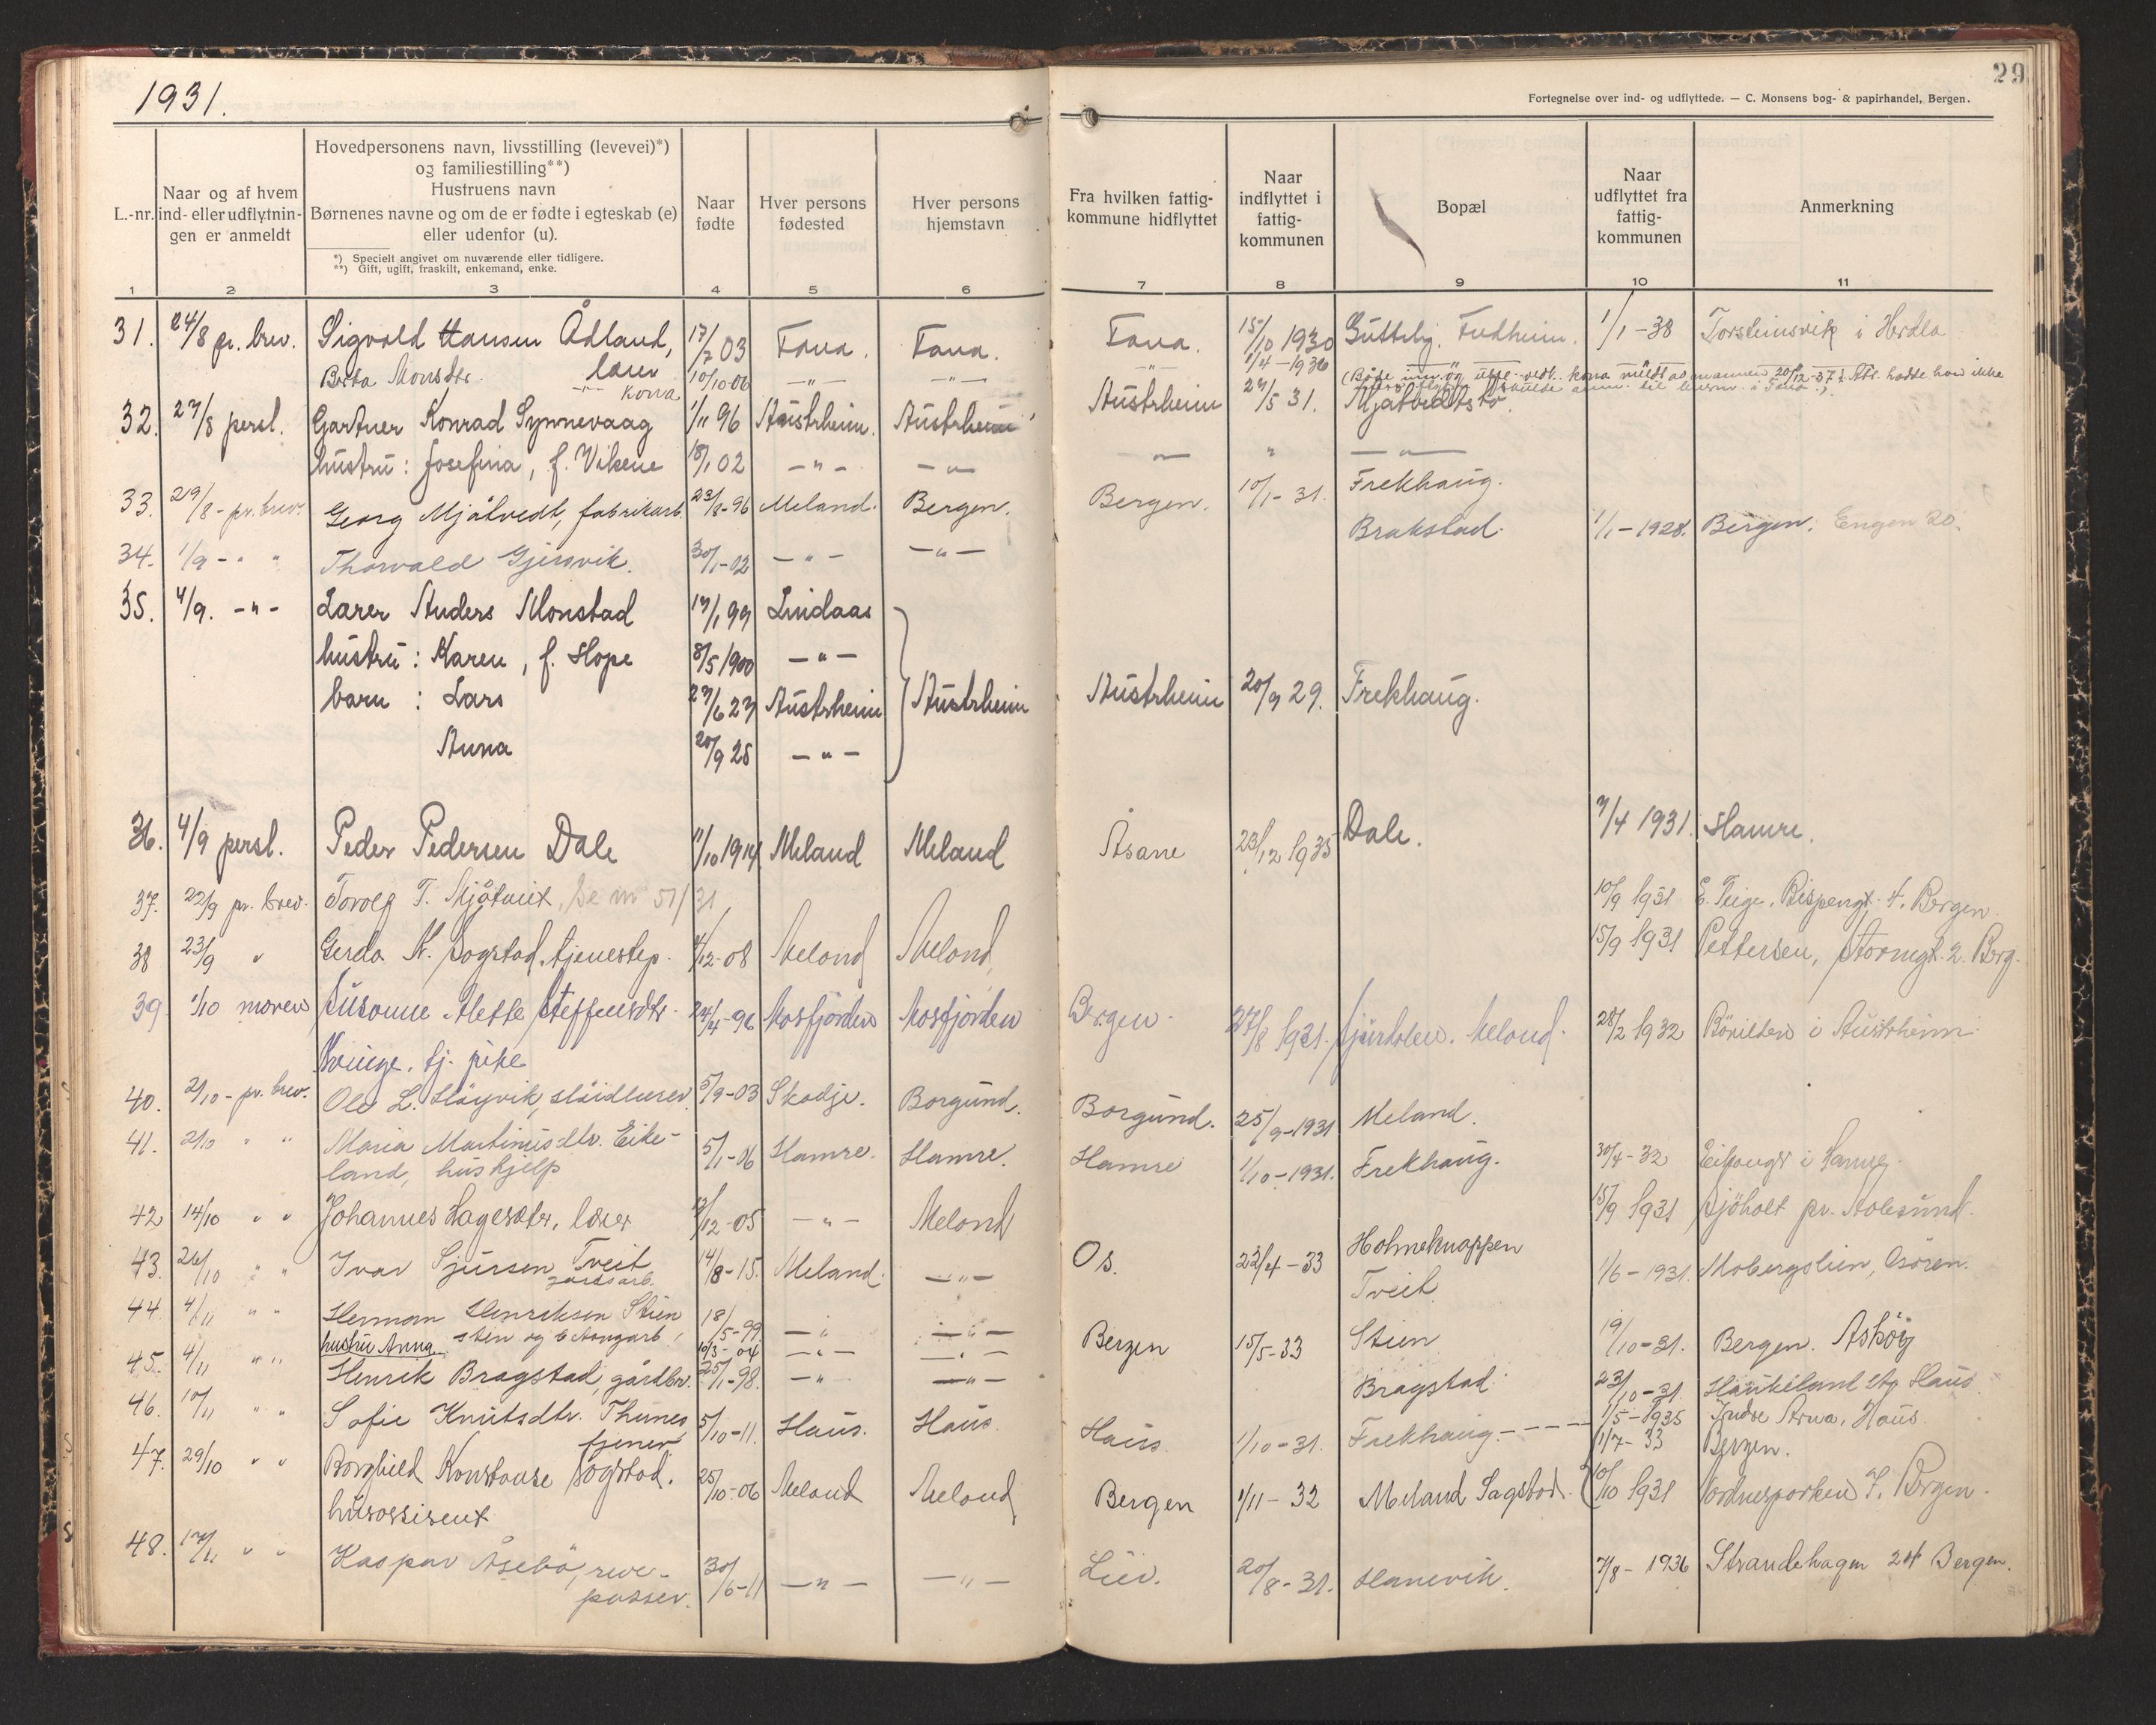 1931.
29
Fortegnelse over ind- og udflyttede. — C. Monsens bog- & papirhandel, Bergen.
L.-nr.
Naar og af hvem ind- eller udflytnin- gen er anmeldt
Hovedpersonens navn, livsstilling (levevei)*)
og familiestilling**)
Hustruens navn
Børnenes navne og om de er fødte i egteskab (e)
eller udenfor (u).
*) Specielt angivet om nuværende eller tidligere.
**) Gift, ugift, fraskilt, enkemand, enke.
Naar fødte
Hver persons fødested
Hver persons hjemstavn
Fra hvilken fattig- kommune hidflyttet
Naar indflyttet i fattig- kommunen
Bopæl
Naar udflyttet fra fattig- kommunen
Anmerkning
1 2 3 4 5 6 7 8 9 10 11
31. 24/8 pr. brev. Sigvald Hansen Ådland, 17/7 03 Fana. Fana. Fana. 15/10 1930 1/1-38 Torsteinsvik i Herdla
lærer
Brita Monsdtr. kona 10/10-06 —"— —"— —"— 1/4-1936
32. 27/8 persl. Gartner Konrad Synnevaag 1/11 96 Austrheim. Austrheim Austrheim 29/5 31. Mjåtvedtstø.
hustru: Josefina, f. Vikene 18/1 02 —"— —"— —"— " —"—
33. 29/8 - pr. brev. Georg Mjåtvedt, fabrikarb. 23/8-96 Meland. Bergen. Bergen. 10/1-31. Frekhaug.
34. 1/9 - " " Thorvald Gjersvik. 30/1-02 —"— —"— Brakstad. 1/1-1928. Bergen. Engen 20.
35. 4/9. -"- Lærer Anders Monstad 17/1 99 Lindaas
hustru: Karen, f. Hope 8/5 1900 —"—
barn: Lars 27/6 27 Austrheim Austrheim Austrheim 20/9 29. Frekhaug.
Anna 20/9 28 —"—
36. 4/9 persl. Peder Pedersen Dale 11/10 1914 Meland Meland Åsane 23/12 1935 Dale. 7/4 1931. Hamre.
37. 22/9 pr. brev. Torolf T. Mjåtveit, Se nr 51/31 10/9 1931 E. Teige, Bispengt. 4. Bergen
38 23/9 " Gerda K. Sagstad, tjenestep. 4/12-08 Meland Meland, 15/9 1931 Pettersen, Stormgt. 2. Berg.
39 1/10 moren Susanne Alette Steffensdtr. 24/4-96 Mosfjorden Mosfjorden Bergen 27/8 1931. Meland. 28/2 1932 i Austrheim
Kvinge, tj. pike
40. 2/10 - pr. brev. Ole L. Håyvik, slöidlærer. 5/9-03 Skodje. Borgund. Borgund. 25/9-1931 Meland.
41. 2/10 " " Maria Martinusdtr. Eike- 5/1-06 Hamre. Hamre. Hamre 1/10-1931. Frekhaug. 30/4-32 Eikanger i Hamre.
land, hushjelp
42 14/10 " " Johannes Hagesæter, lærer 12/12-05 —"— Meland 15/9 1931 Sjöholt pr. Aalesund.
43. 26/10 " " Ivar Sjursen Tveit 14/8-15. Meland. —"— Os. 22/4-33 Holmeknappen 1/6-1931. Mobergslien, Osøren.
gårdsarb. Tveit
44. 4/11 " " Herman Henriksen Stien 18/5-99. —"— —"— Bergen 15/5-33 Stien 19/10-31. Bergen. Askøy
sten og betongarb.
hustru Anna 10/3-04 —"— —"—
45. 4/11 " " Henrik Bragstad, gårdbr. 25/1-98. —"— —"— Bragstad. 23/10-31. Haukeland st. Haus.
46. 10/11 " " Sofie Knutsdtr. Thunes 5/10-11. Haus. Haus. Haus. 1/10-31. Frekhaug. 1/5-1935 Indre Arna, Haus.
tjener 1/7-33 Bergen.
47. 29/10 " " Borghild Konstanse Sagstad. 25/10-06 Meland Meland Bergen 1/11-32 Meland Sagstad. 10/10 1931 Nordnesparken 7. Bergen.
husassisent
48. 17/11 " " Kaspar Åsebø, reve- 30/6-11 —"— —"— Lier. 20/8-31. Hanevik. 7/8-1936 Strandehagen 24 Bergen.
passer.